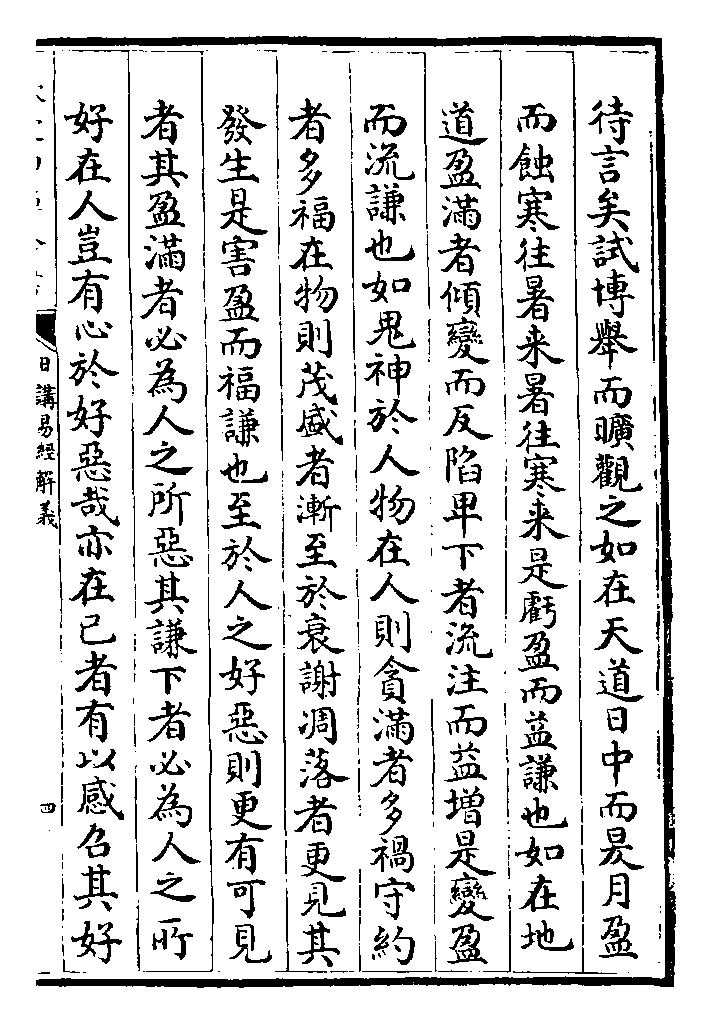 待言矣試博舉而曠觀之如在天道日中而昃月盈
而蝕寒往暑来暑往寒来是虧盈而益謙也如在地
道盈滿者傾變而反陷卑下者流注而益增是變盈
而流謙也如鬼神於人物在人則貪滿者多禍守約
者多福在物則茂盛者漸至於衰謝凋落者更見其
發生是害盈而福謙也至於人之好惡則更有可見
者其盈滿者必為人之所惡其謙下者必為人之所
好在人豈有心於好惡哉亦在已者有以感召其好
日講易經解義
四